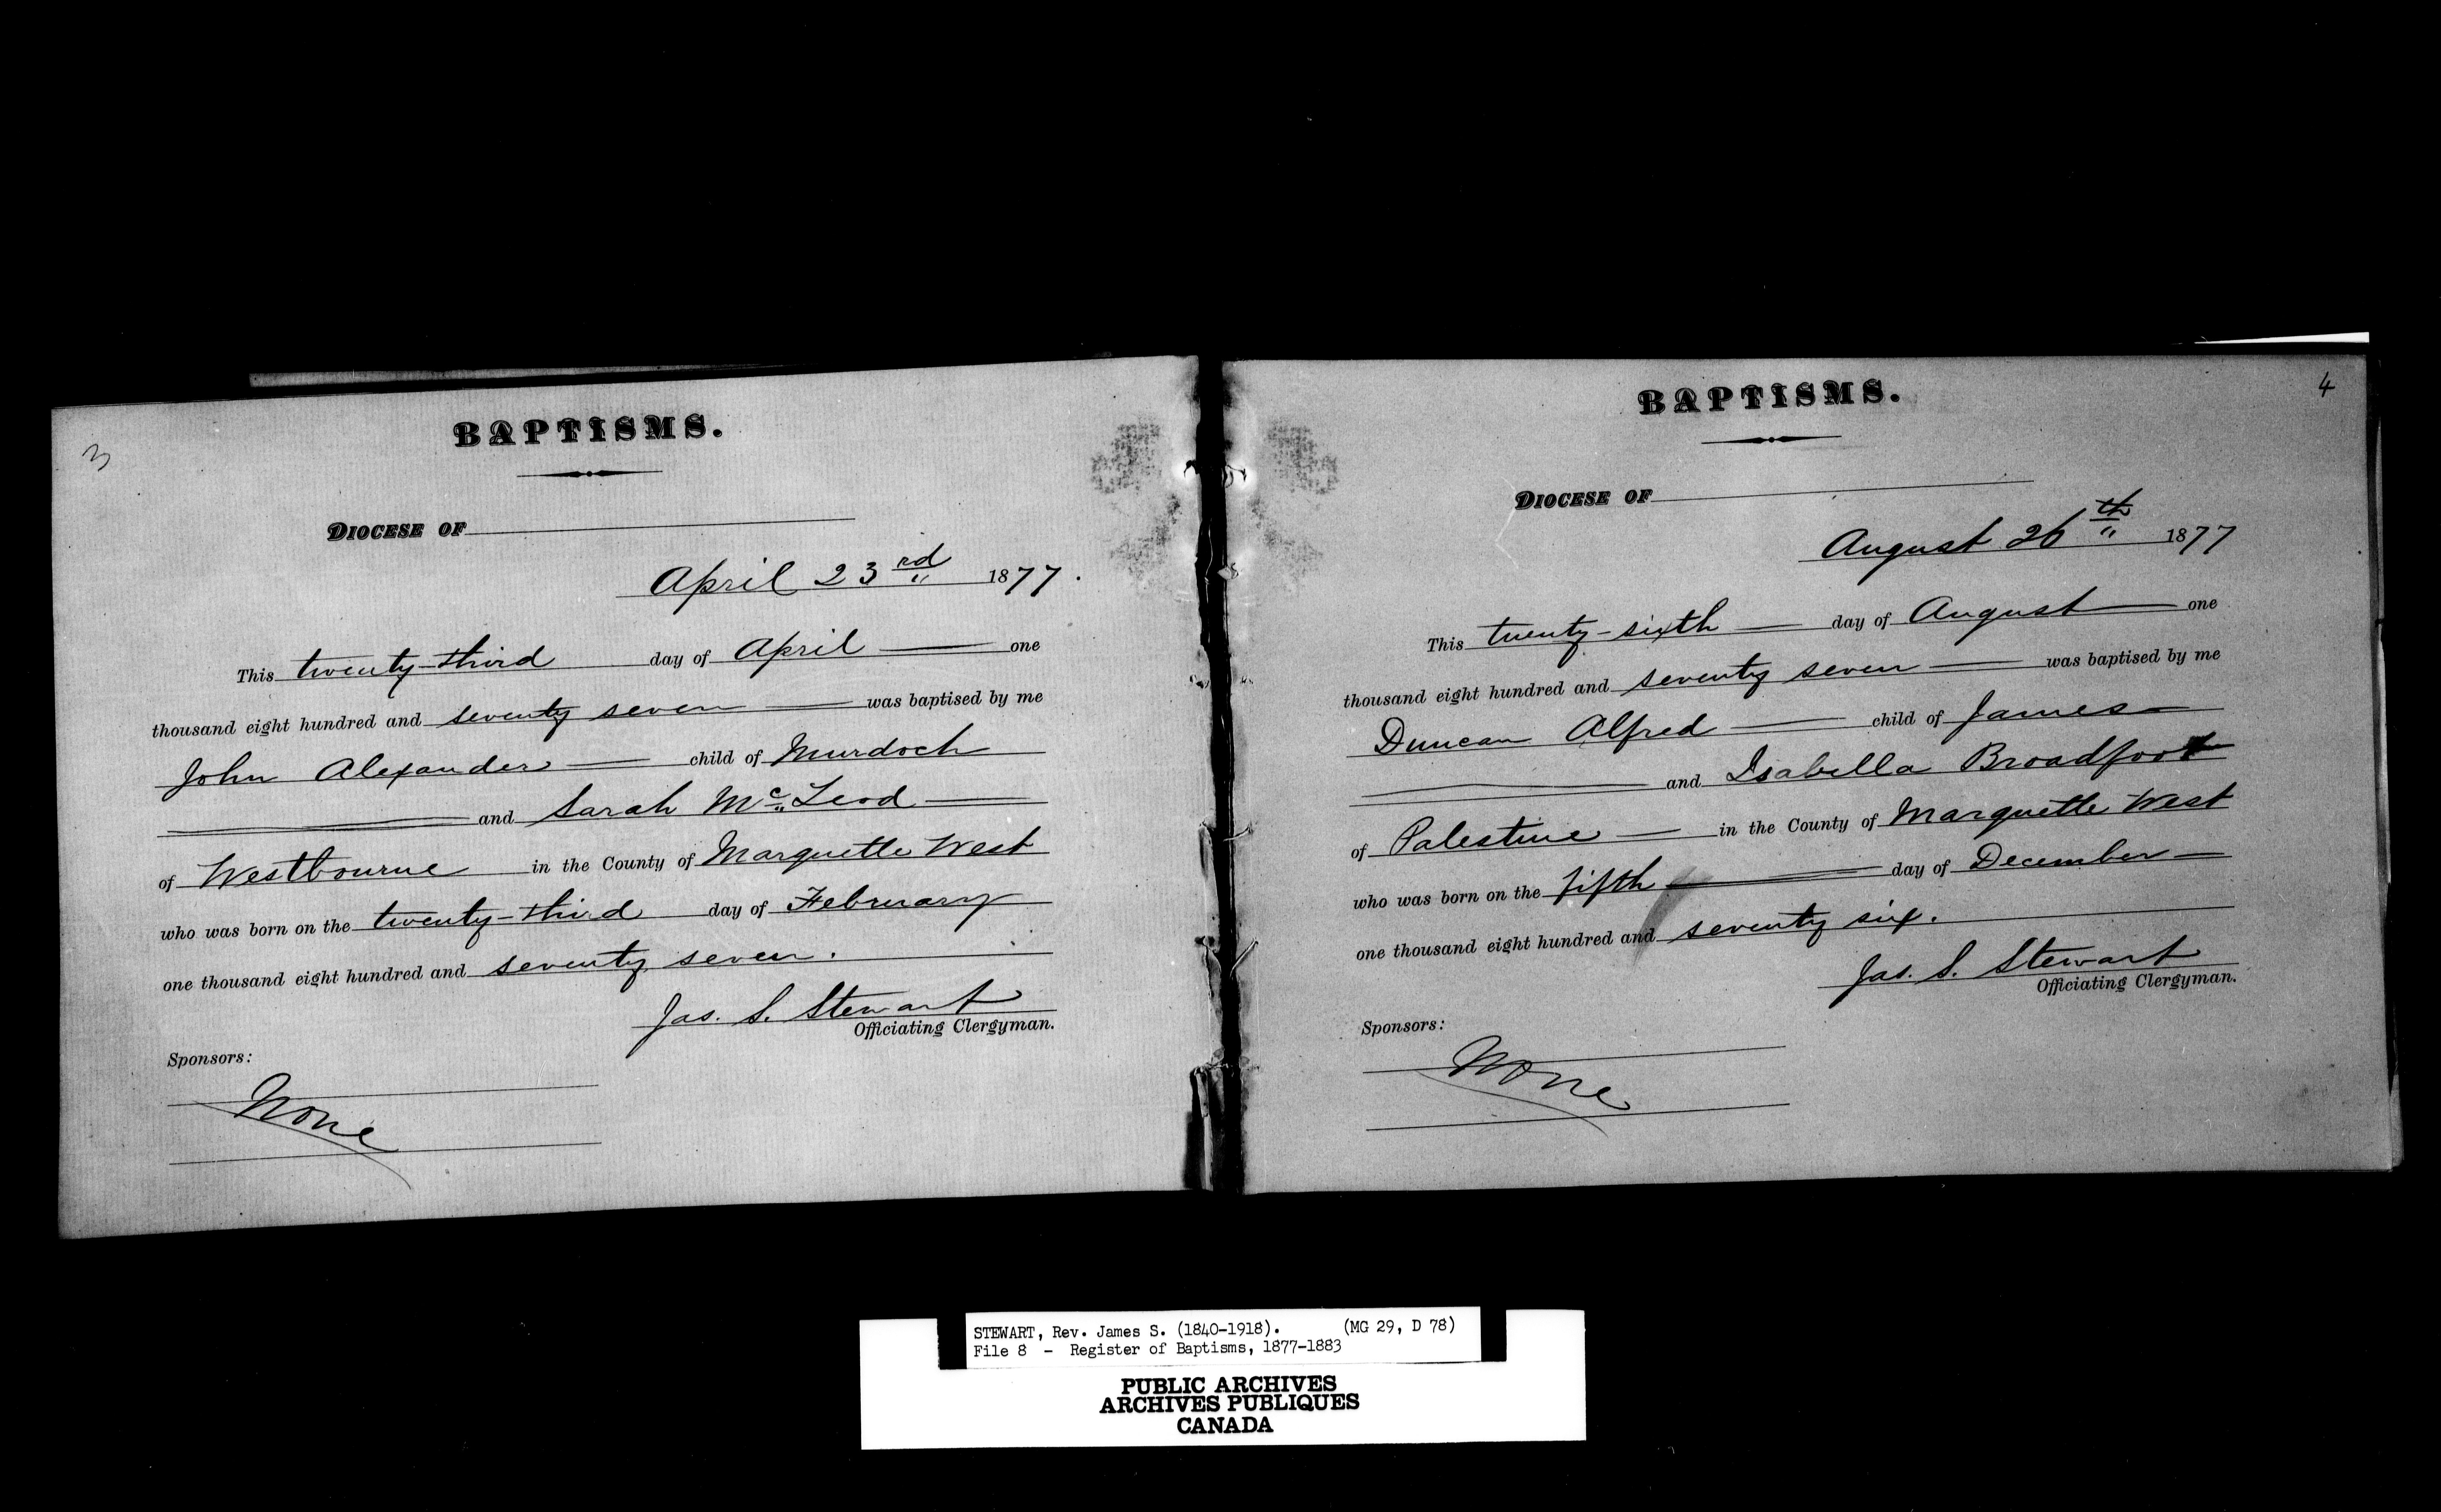 3
BAPTISMS.
DIOCESE OF
April 23rd 1877.
This twenty-third day of April one
thousand eight hundred and seventy seven was baptised by me
John Alexander child of Murdoch
and Sarah McLeod
of Westbourne in the County of Marquette West
who was born on the twenty-third day of February
one thousand eight hundred and seventy seven.
Jas. S. Stewart
Officiating Clergyman.
Sponsors:
None
4
BAPTISMS.
DIOCESE OF
August 26th 1877
This twenty-sixth day of August one
thousand eight hundred and seventy seven was baptised by me
Duncan Alfred child of James
and Isabella Broadfoot
of Palestine in the County of Marquette West
who was born on the fifth day of December
one thousand eight hundred and seventy six.
Jas. S. Stewart
Officiating Clergyman.
Sponsors:
None
STEWART, Rev. James S. (1840-1918). (MG 29, D 78)
File 8 - Register of Baptisms, 1877-1883
PUBLIC ARCHIVES
ARCHIVES PUBLIQUES
CANADA